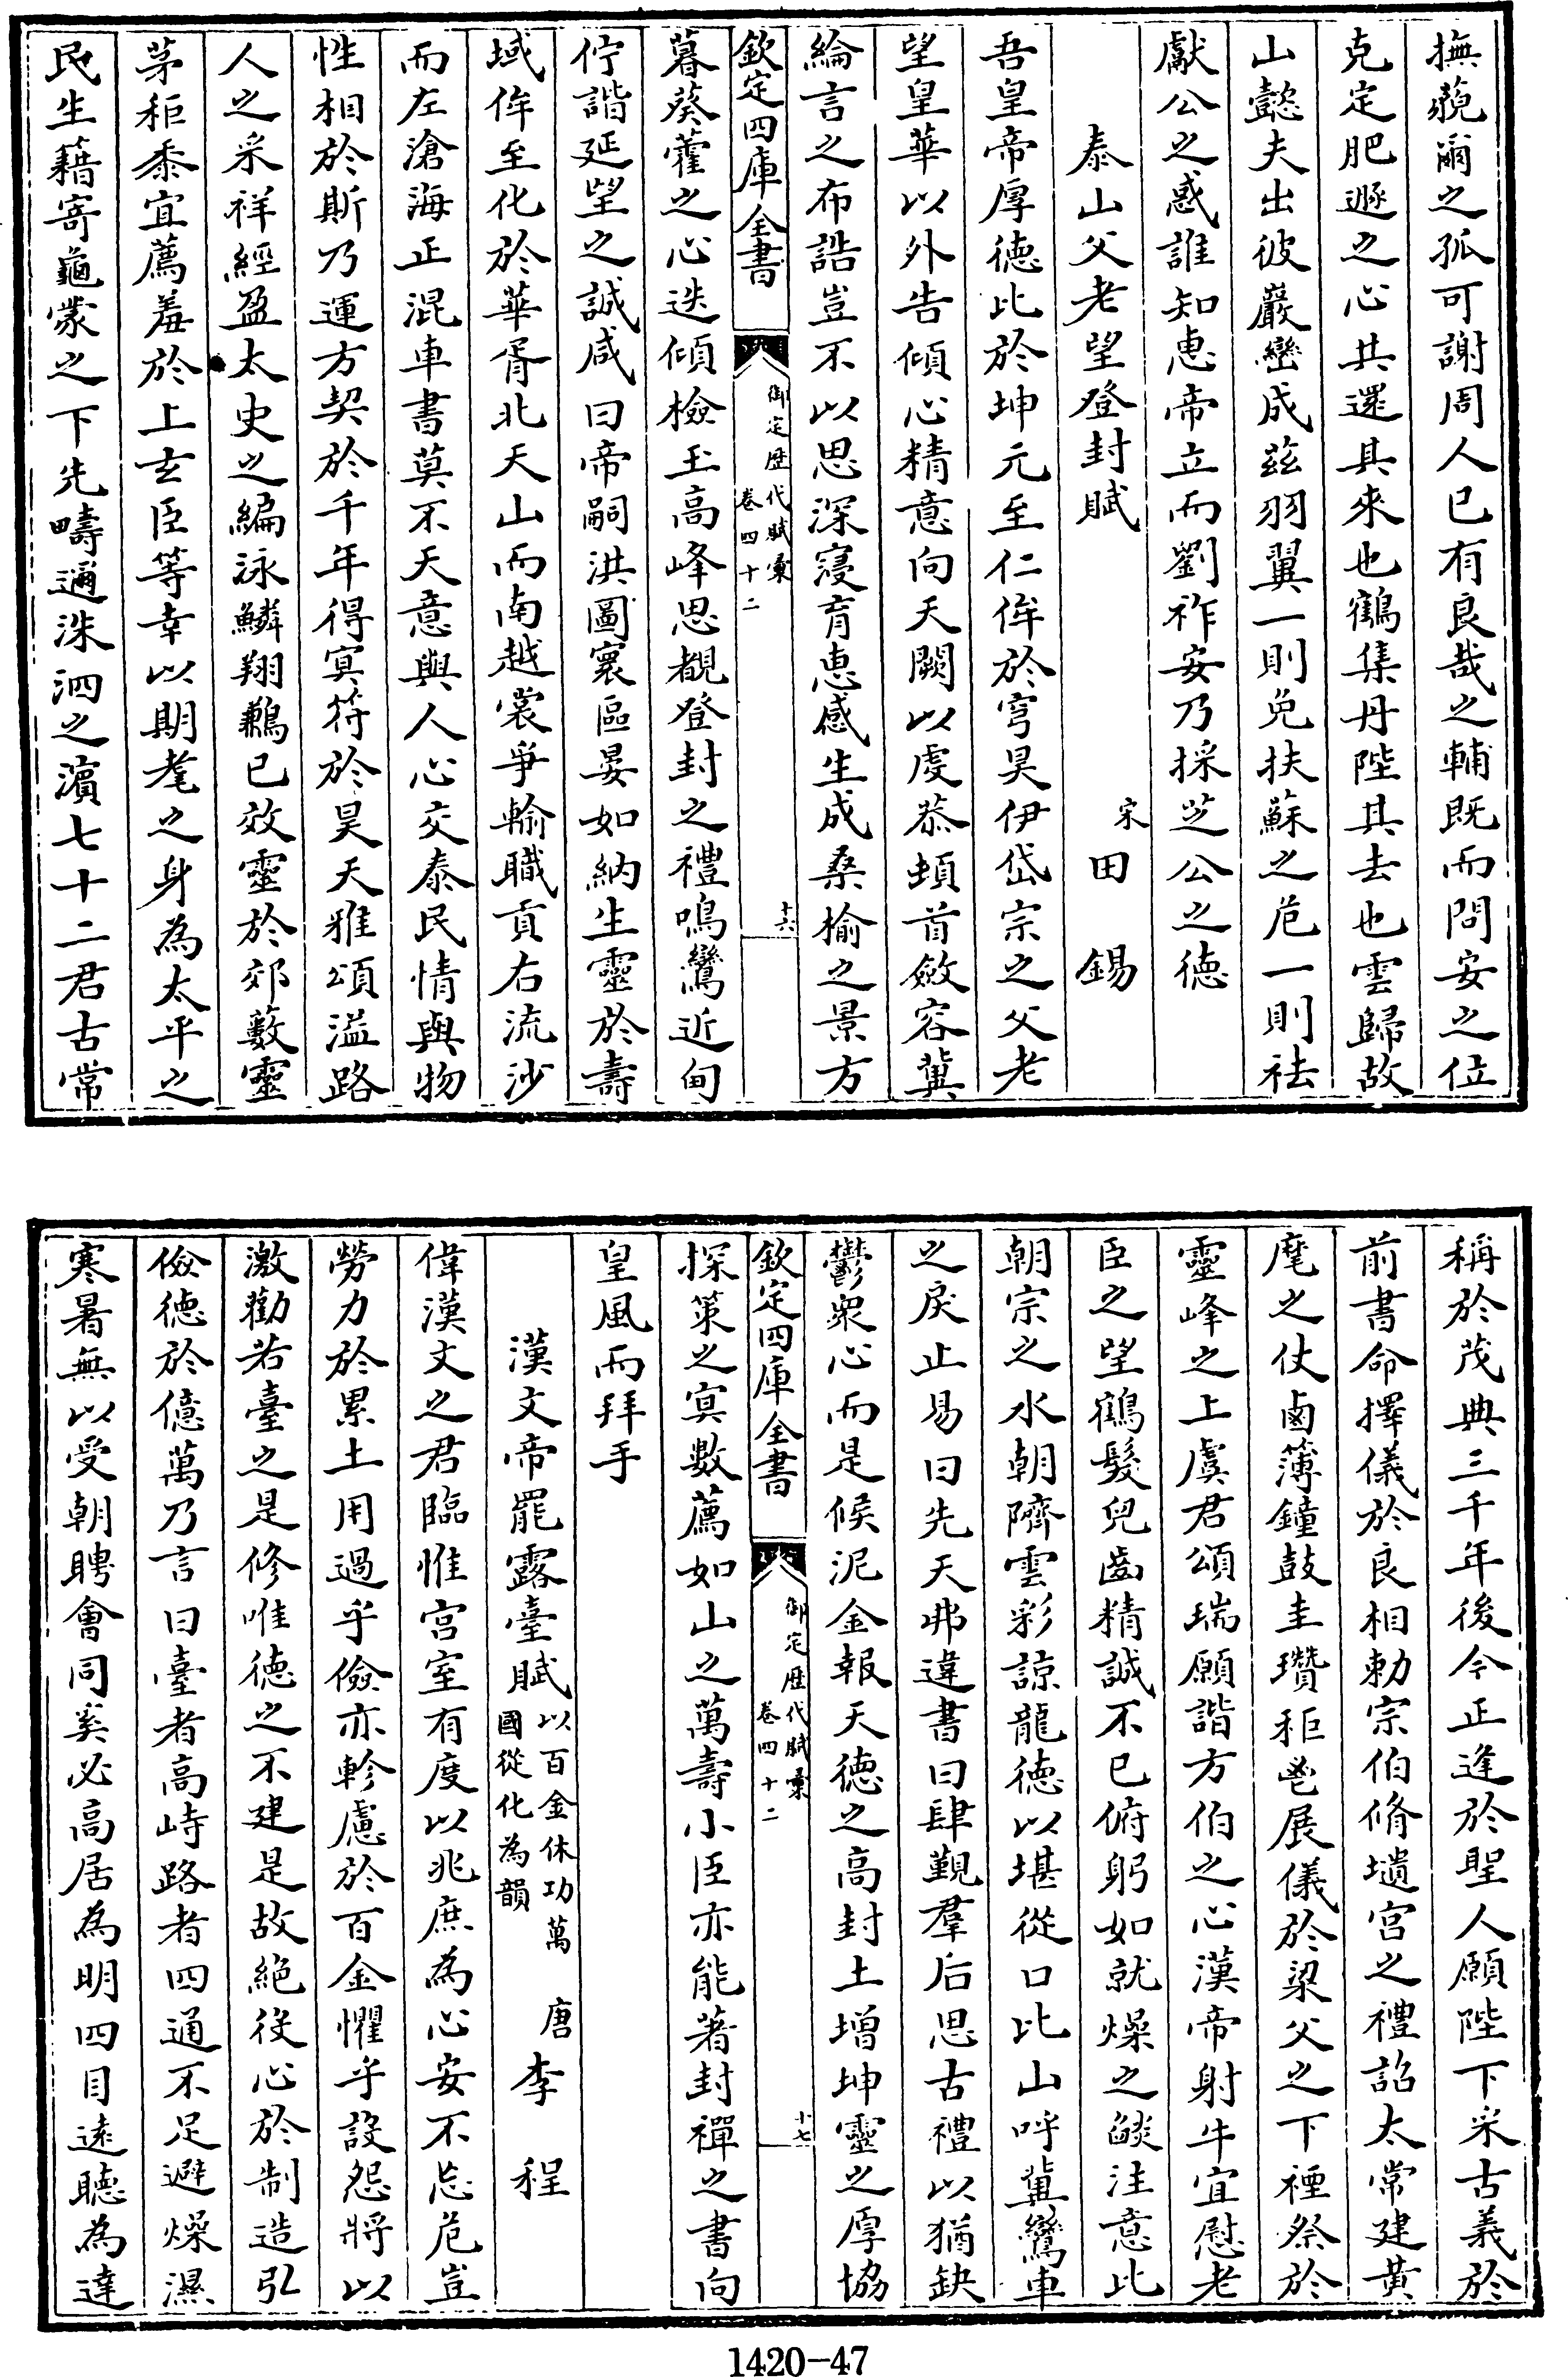 撫藐爾之孤可謝周人已有良哉之輔既而問安之位
克定肥遯之心共還具來也鶴集丹陛其去也雲歸故
山懿夫出彼巖巒成兹羽翼一則免扶蘇之危一則祛
獻公之惑誰知惠帝立而劉祚安乃採芝公之德
泰山父老望登封賦
宋田錫
吾皇帝厚德比於坤元至仁侔於穹昊伊岱宗之父老
望皇華以外告傾心精意向天闕以虔恭頓首斂容冀
綸言之布誥豈不以思深寖育惠感生成桑榆之景方
欽定四庫全書
御定歴代賦彙
卷四十二
十六
暮葵藿之心迭傾檢玉高峰思覩登封之禮鳴鸞近甸
佇諧延望之誠咸曰帝嗣洪圖寰區晏如納生靈於壽
域侔至化於華胥北天山而南越裳爭輸職貢右流沙
而左滄海正混車書莫不天意與人心交泰民情與物
性相於斯乃運方契於千年得冥符於昊天雅頌溢路
人之采祥經盈太史之編泳鱗翔鶼已效靈於郊藪靈
茅秬黍宜薦羞於上玄臣等幸以期耄之身為太平之
民生籍寄龜蒙之下先疇邇洙泗之濵七十二君古常
稱於茂典三千年後今正逢於聖人願陛下采古義於
前書命擇儀於良相勅宗伯脩壝宫之禮詔太常建黄
麾之仗鹵簿鐘鼓圭瓚秬鬯展儀於梁父之下禋祭於
靈峰之上虞君頌瑞願諧方伯之心漢帝射牛宜慰老
臣之望鶴髮兒齒精誠不已俯躬如就燥之燄注意比
朝宗之水朝隮雲彩諒龍德以堪從口比山呼冀鸞車
之戾止易曰先天弗違書曰肆覲羣后思古禮以猶缺
鬱衆心而是候泥金報天德之高封土增坤靈之厚協
欽定四庫全書
御定歴代賦彙
卷四十二
十七
探策之冥數薦如山之萬壽小臣亦能著封禪之書向
皇風而拜手
漢文帝罷露臺賦
以百金休功萬
國從化為韻
唐李程
偉漢文之君臨惟宫室有度以兆庶為心安不忘危豈
勞力於累土用過乎儉亦軫慮於百金懼乎設怨將以
激勸若臺之是修唯德之不建是故絶役心於制造弘
儉德於億萬乃言曰臺者高峙路者四通不足避燥濕
寒暑無以受朝聘會同奚必高居為明四目逺聽為達
1420-47